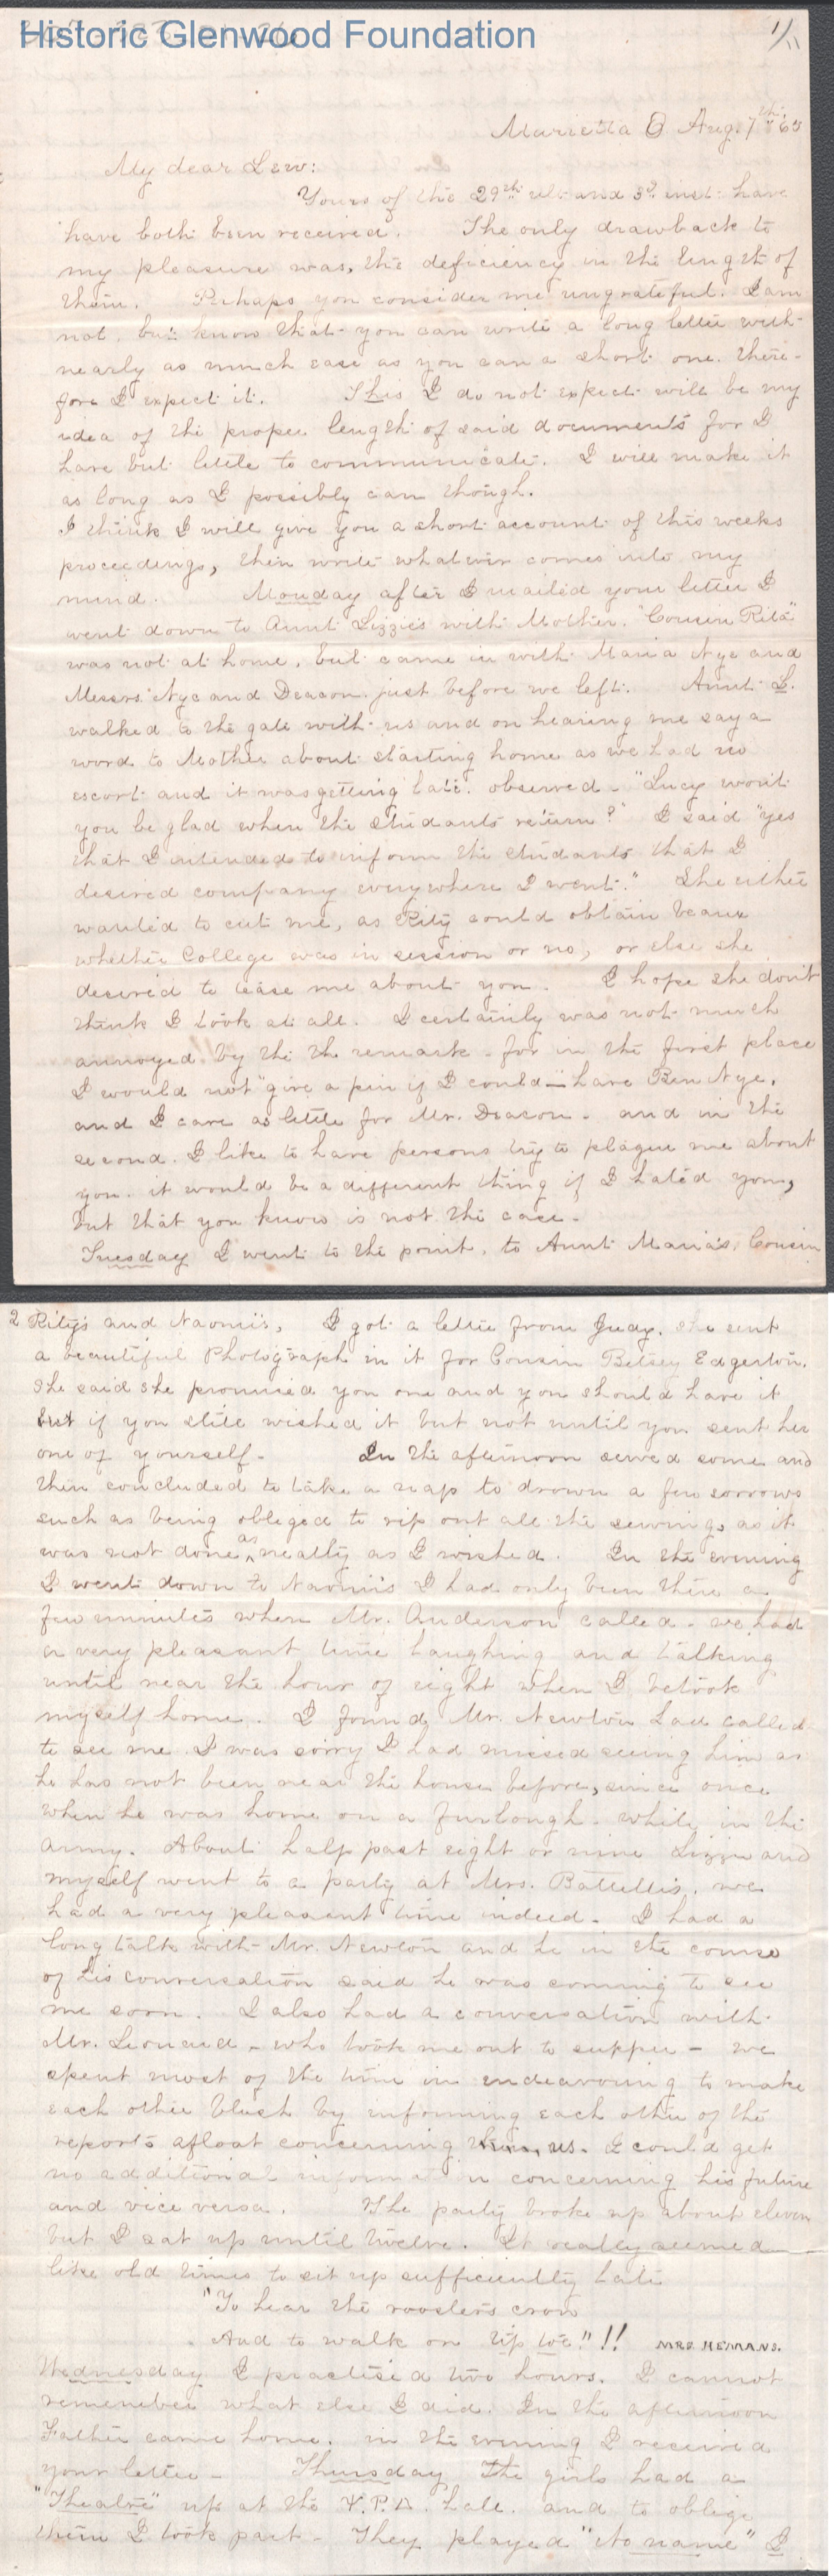 Historic Glenwood Foundation
1/11
Marietta O Aug. 7th 65
My dear Lew:
Yours of the 29th ult. and 3d. inst. have
have both been received. The only drawback to
my pleasure was, the deficiency in the length of
them. Perhaps you consider me ungrateful. I am
not, but know that you can write a long letter with
nearly as much ease as you can a short one. there-
fore I expect it. This I do not expect will be my
idea of the proper length of said documents for I
have but little to communicate. I will make it
as long as I possibly can though.
I think I will give you a short account of this weeks
proceedings, then write whatever comes into my
mind. Monday after I mailed your letter I
went down to Aunt Lizzie's with Mother. "Cousin Rita"
was not at home, but came in with Maria Nye and
Messrs. Nye and Deacon just before we left. Aunt L.
walked to the gate with us and on hearing me say a
word to Mother about starting home as we had no
escort and it was getting late. observed - "Lucy won't
you be glad when the students return?" I said "yes
that I intended to inform the students that I
desired company everywhere I went." She either
wanted to cut me, as Rity could obtain beaux
whether College was in session or no, or else she
desired to tease me about you. I hope she don't
think I took at all. I certainly was not much
annoyed by the the remark - for in the first place
I would not "give a pin if I could" have Ben Nye,
and I care as little for Mr. Deacon - and in the
second. I like to have persons try to plague me about
you. it would be a different thing if I hated you,
but that you know is not the case -
Tuesday I went to the point, to Aunt Maria's, Cousin
2 Rity's and Naomi's, I got a letter from Judy. she sent
a beautiful Photograph in it for Cousin Betsey Edgerton.
She said she promised you one and you should have it
but if you still wished it but not until you sent her
one of yourself - In the afternoon sewed some and
then concluded to take a nap to drown a few sorrows
such as being obliged to rip out all the sewing, as it
was not done as neatly as I wished. In the evening
I went down to Naomi's I had only been there a
few minutes when Mr. Anderson called - we had
a very pleasant time laughing and talking
until near the hour of eight when I betook
myself home. I found Mr. Newton had called
to see me. I was sorry I had missed seeing him as
he has not been near the house before, since once
when he was home on a furlough - while in the
army. About half past eight or nine Lizzie and
myself went to a party at Mrs. Battelle's. we
had a very pleasant time indeed - I had a
long talk with Mr. Newton and he in the course
of his conversation said he was coming to see
me soon. I also had a conversation with
Mr. Leonard - who took me out to supper - we
spent most of the time in endeavouring to make
each other blush by informing each other of the
reports afloat concerning us. I could get
no additional information concerning his future
and vice versa. The party broke up about eleven
but I sat up until twelve. It really seemed
like old times to sit up sufficiently late
"To hear the roosters crow
And to walk on tip toe."!! MRS. HEMANS.
Wednesday I practised two hours. I cannot
remember what else I did. In the afternoon
Father came home. in the evening I received
your letter - Thursday The girls had a
"Theatre" up at the hall. and to oblige
them I took part - They played "No name" I